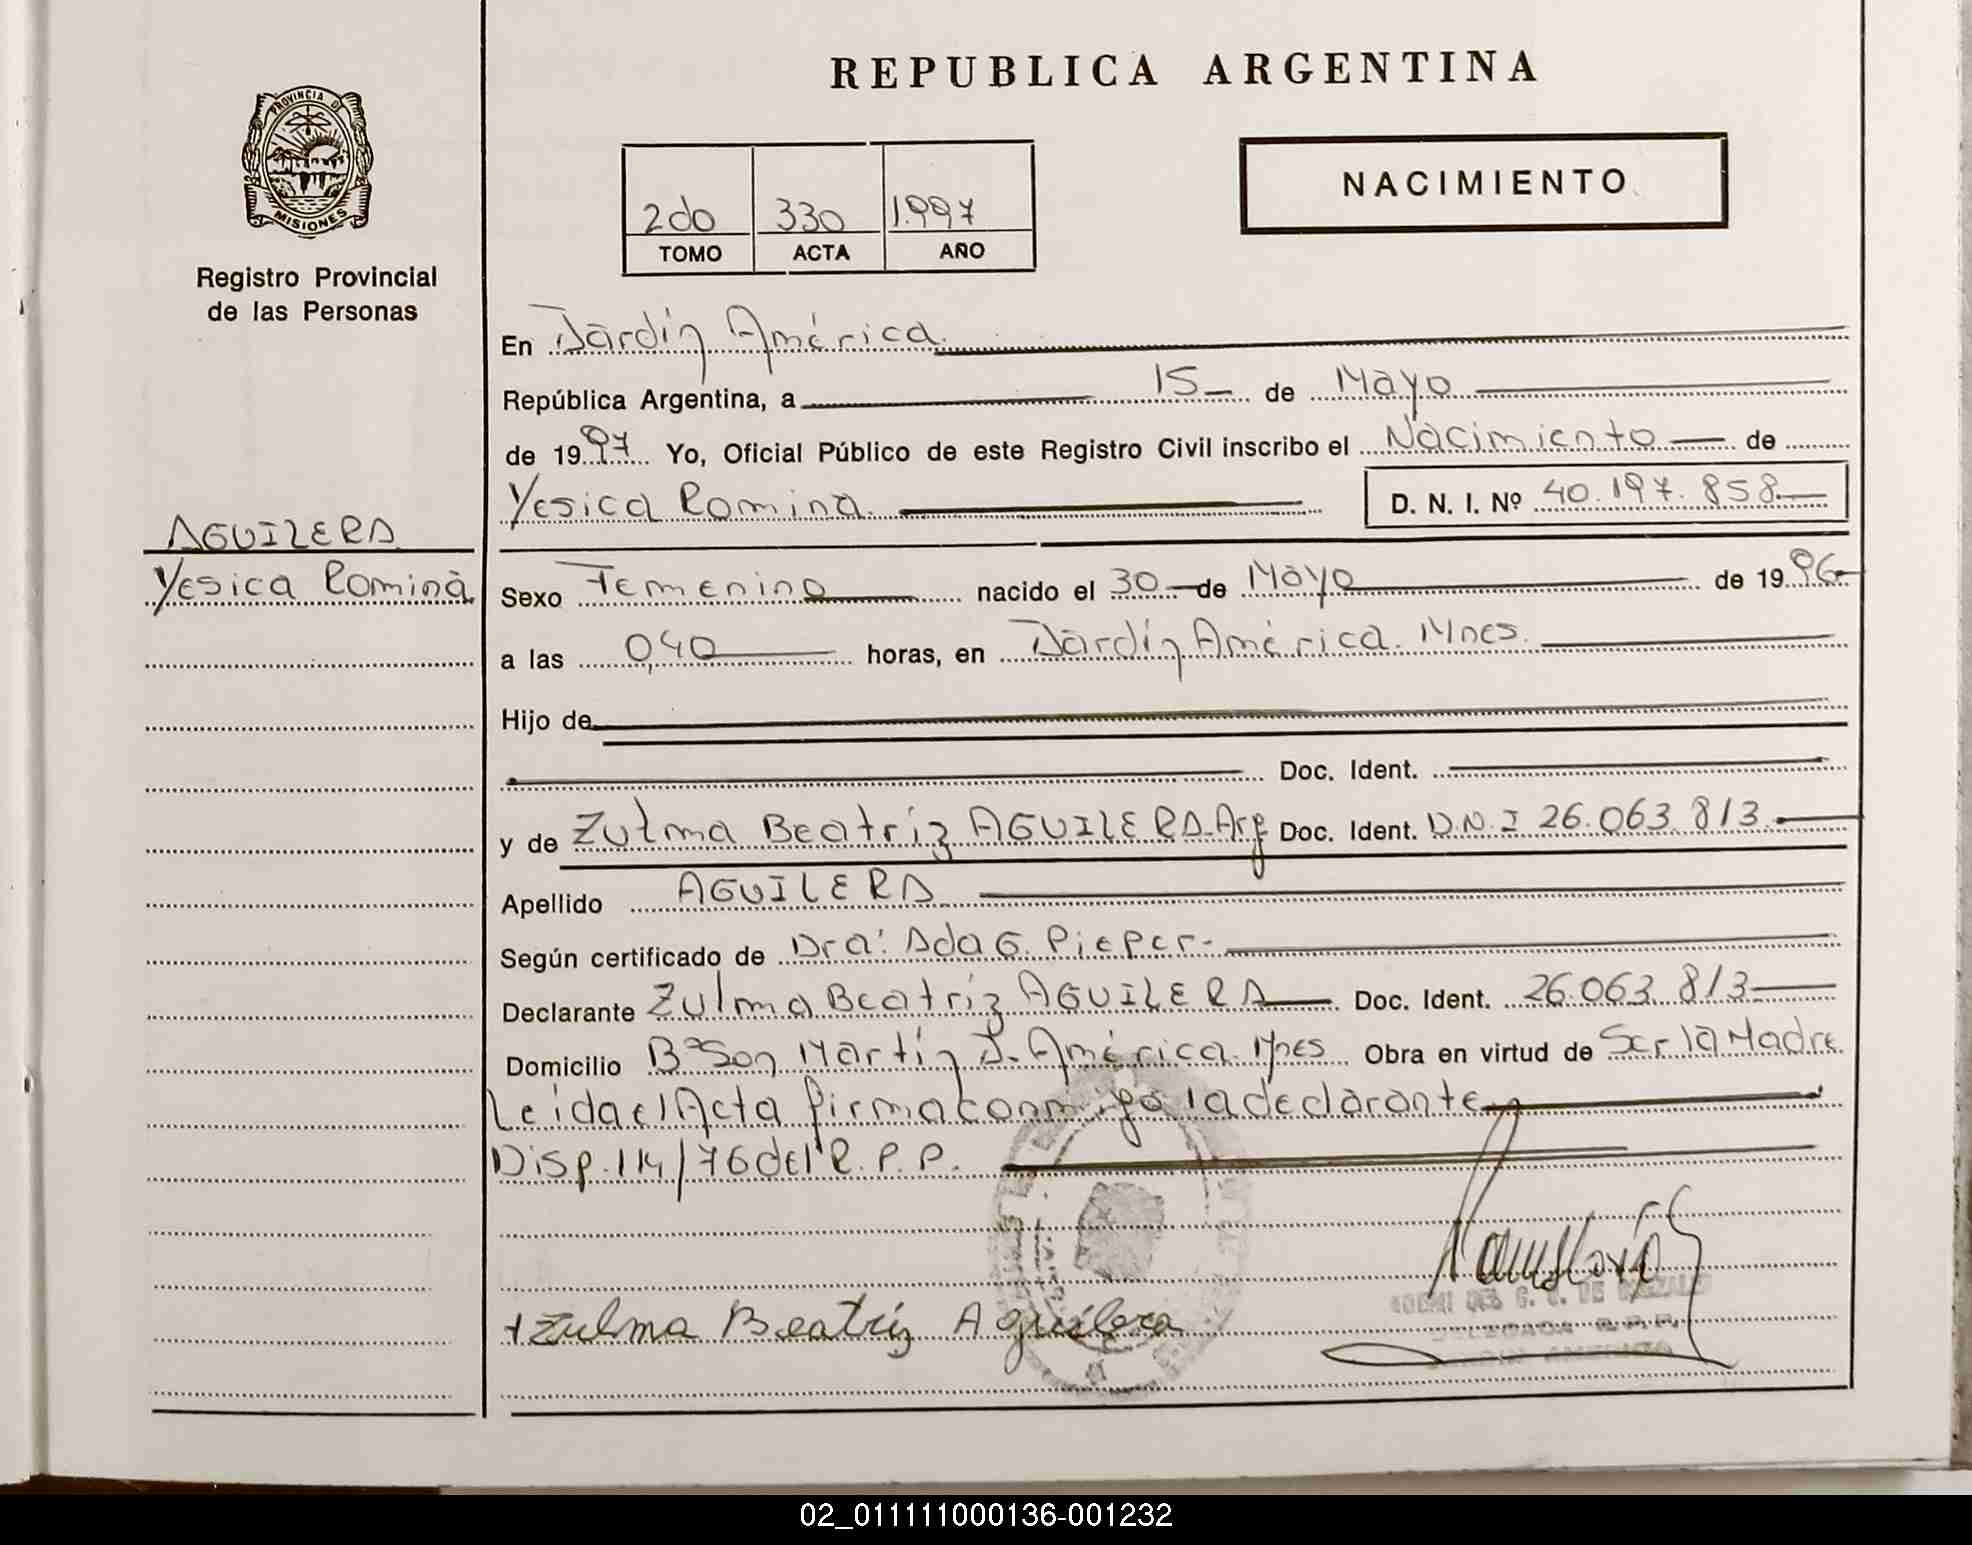 REPUBLICA ARGENTINA
PROVINCIA DE
MISIONES
Registro Provincial
de las Personas
2do 330 1.997
TOMO ACTA AÑO
NACIMIENTO
En Jardín América.
República Argentina, a 15 de Mayo
de 1997 Yo, Oficial Público de este Registro Civil inscribo el Nacimiento de
Yesica Romina. D. N. I. Nº 40.197.858
AGUILERA
Yesica Romina
Sexo Femenino nacido el 30 de Mayo de 1996
a las 0,40 horas, en Jardín América. Mnes.
Hijo de
Doc. Ident.
y de Zulma Beatriz AGUILERA. Arg Doc. Ident. D.N.I 26.063.813.
Apellido AGUILERA
Según certificado de Dra: Ada G. Pieper-
Declarante Zulma Beatriz AGUILERA Doc. Ident. 26.063.813
Domicilio Bº San Martín J. América. Mnes Obra en virtud de Ser la Madre
Leida el Acta firma conmigo la declarante
Disp. 114/76 del R. P. P.
Zulma Beatriz Aguilera
02_011111000136-001232